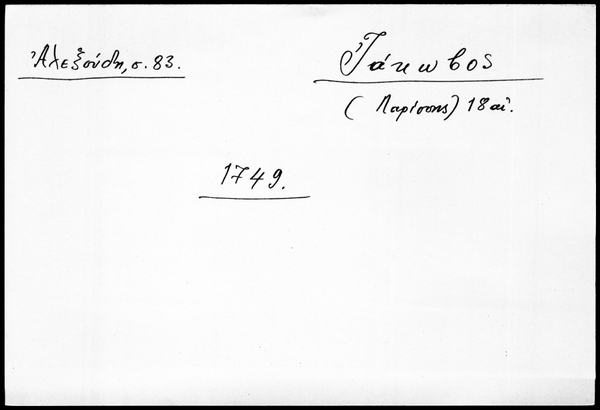 Ἀλεξούδη, σ. 83.
Ἰάκωβος
(Λαρίσσης) 18 αἰ.
1749.